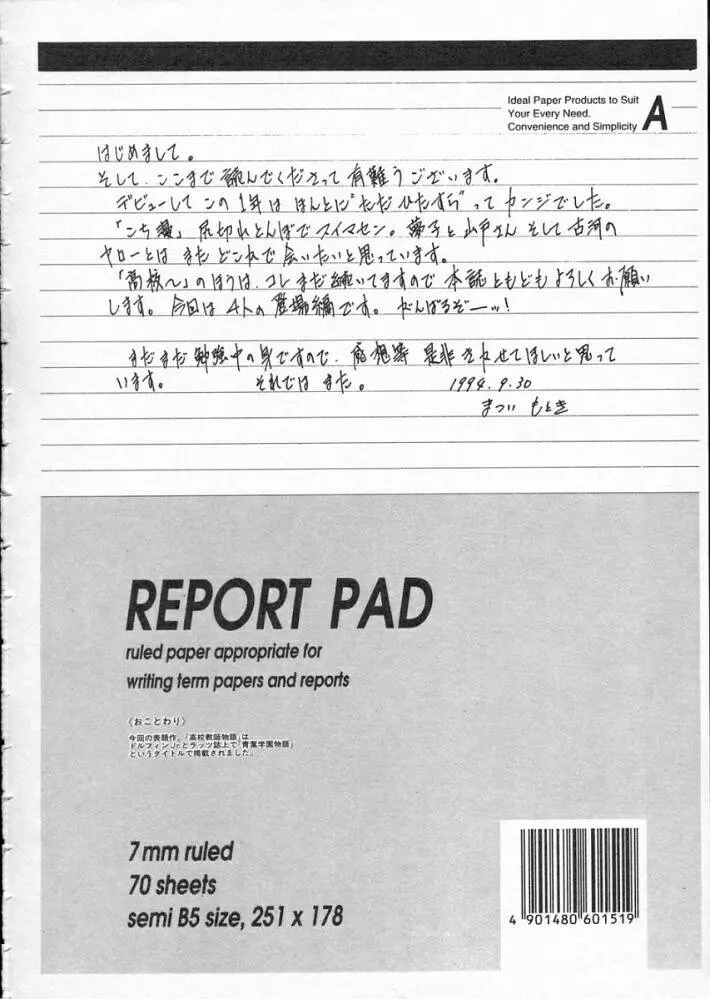 Ideal Paper Products to Suit
Your Every Need.
Convenience and Simplicity A
はじめまして。
そして、ここまで読んでくださって有難うございます。
デビューしてこの1年はほんとに"ただひたすら"ってカンジでした。
「こち瀬」尻切れとんぼでスイマセン。夢子と山戸さんそして古河の
ヤローとはまたどこかで会いたいと思っています。
「高校〜」のほうは、コレまだ続いてますので本誌ともどもよろしくお願い
します。今回は4人の登場編です。がんばるぞーッ!
まだまだ勉強中の身ですので、感想等是非きかせてほしいと思って
います。 それではまた。 1994.9.30
まつい もとき
REPORT PAD
ruled paper appropriate for
writing term papers and reports
〈おことわり〉
今回の表題作、「高校教師物語」は
ドルフィンJr.とラッツ誌上で「青葉学園物語」
というタイトルで掲載されました。
7mm ruled
70 sheets
semi B5 size, 251 x 178
4 901480 601519